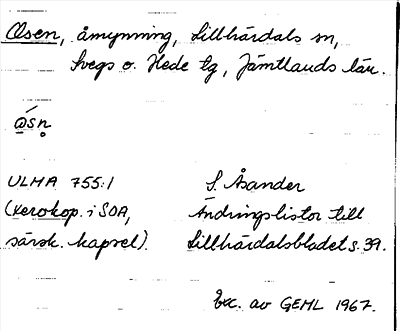 Osen, åmynning, Lillhärdals sn,
Svegs o. Hede tg, Jämtlands län.
ULMA 755:1 S. Åsander
(xerokop. i SOA, Ändringslistor till
särsk. kapsel). Lillhärdalsbladet s. 39.
Exc. av GEHL 1967.